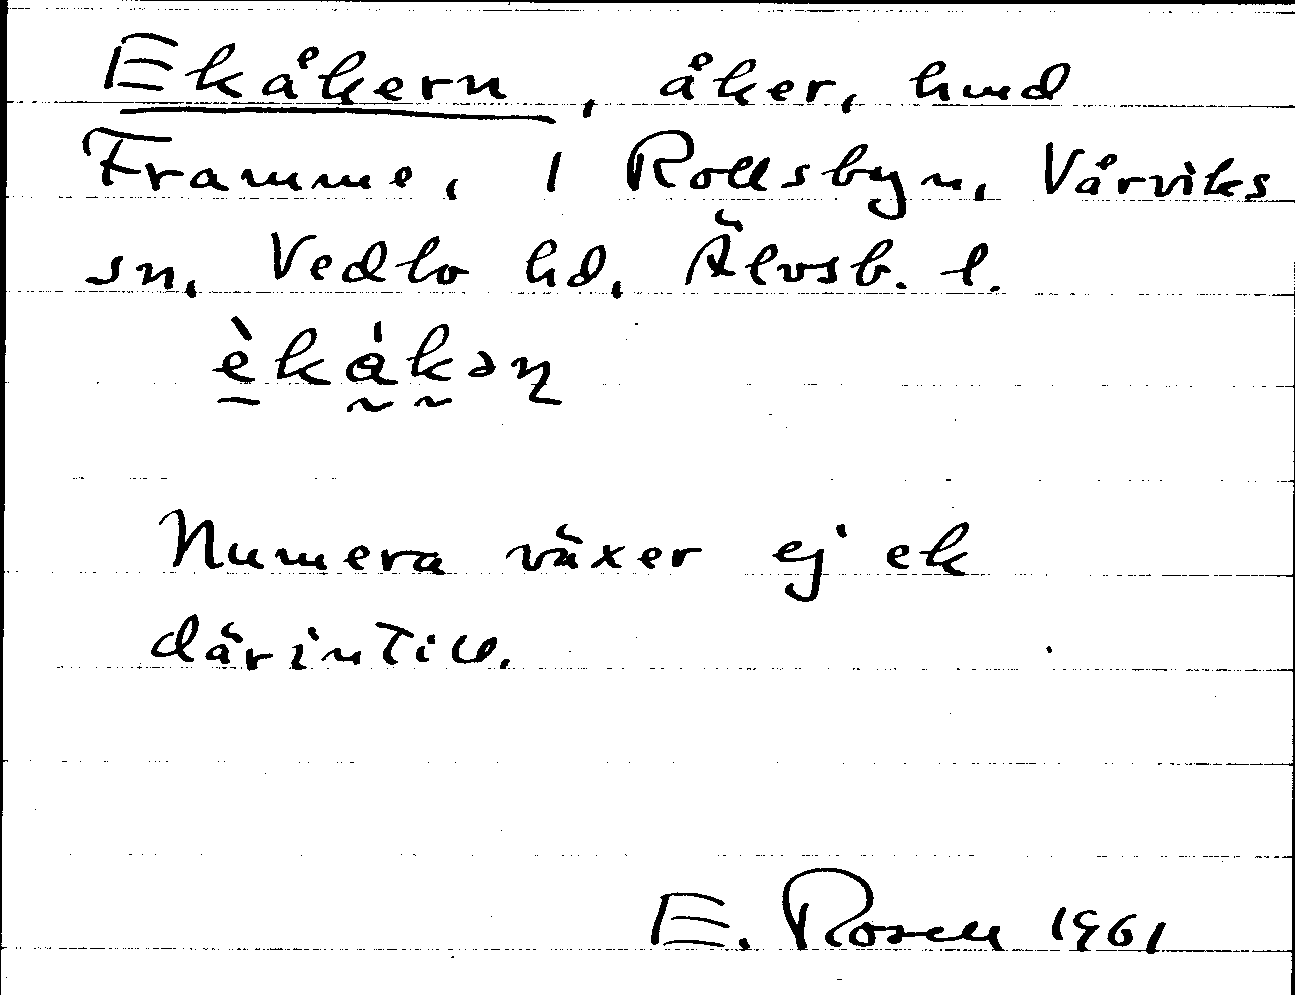 Ekåkern, åker, hmd
Framme, 1 Rollsbyn, Vårviks
sn, Vedbo hd, Älvsb. l.
èkákəɳ
Numera växer ej ek
därintill.
E. Rosell 1961